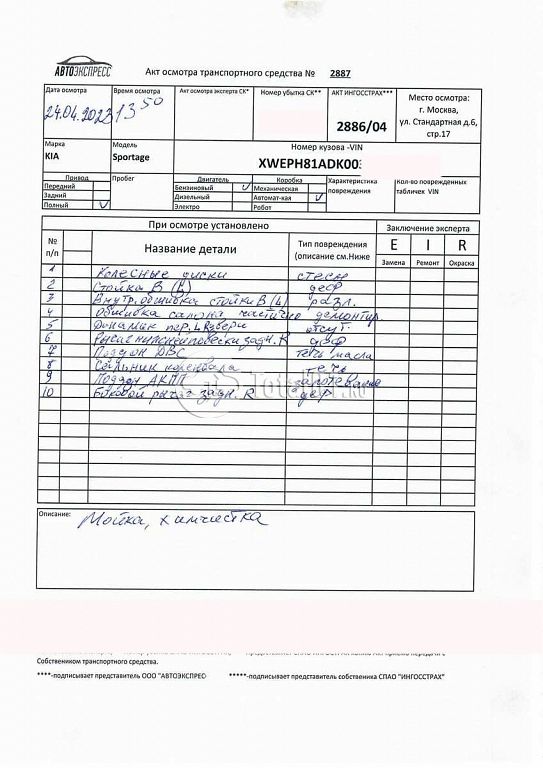 АВТОЭКСПРЕСС
Акт осмотра транспортного средства № 2887
Дата осмотра
24.04.2023
Время осмотра
13 50
Акт осмотра эксперта СК*
Номер убытка СК**
АКТ ИНГОССТРАХ***
2886/04
Место осмотра:
г. Москва,
ул. Стандартная д.6,
стр.17
Марка
KIA
Модель
Sportage
Номер кузова -VIN
XWEPH81ADK00
Привод
Передний
Задний
Полный V
Пробег
Двигатель
Бензиновый V
Дизельный
Электро
Коробка
Механическая
Автомат-кая V
Робот
Характеристика
повреждения
Кол-во поврежденных
табличек VIN
При осмотре установлено
Заключение эксперта
№
п/п
Название детали
Тип повреждения
(описание см.Ниже
E I R
Замена Ремонт Окраска
1 Колесные диски стесн
2 Стойка В (H) деф
3 Внутр. обшивка стойки В (L) разл.
4 Обшивка салона частично демонтир.
5 Динамик пер. L двери отсут.
6 задн. R деф
7 Поддон ДВС течь масла
8 Сальник коленвала течь
9 Поддон АКПП запотевание
10 Боковой рычаг задн. R деф
Описание:
Мойка, химчистка
Собственником транспортного средства.
****-подписывает представитель ООО "АВТОЭКСПРЕС
*****-подписывает представитель собственника СПАО "ИНГОССТРАХ"